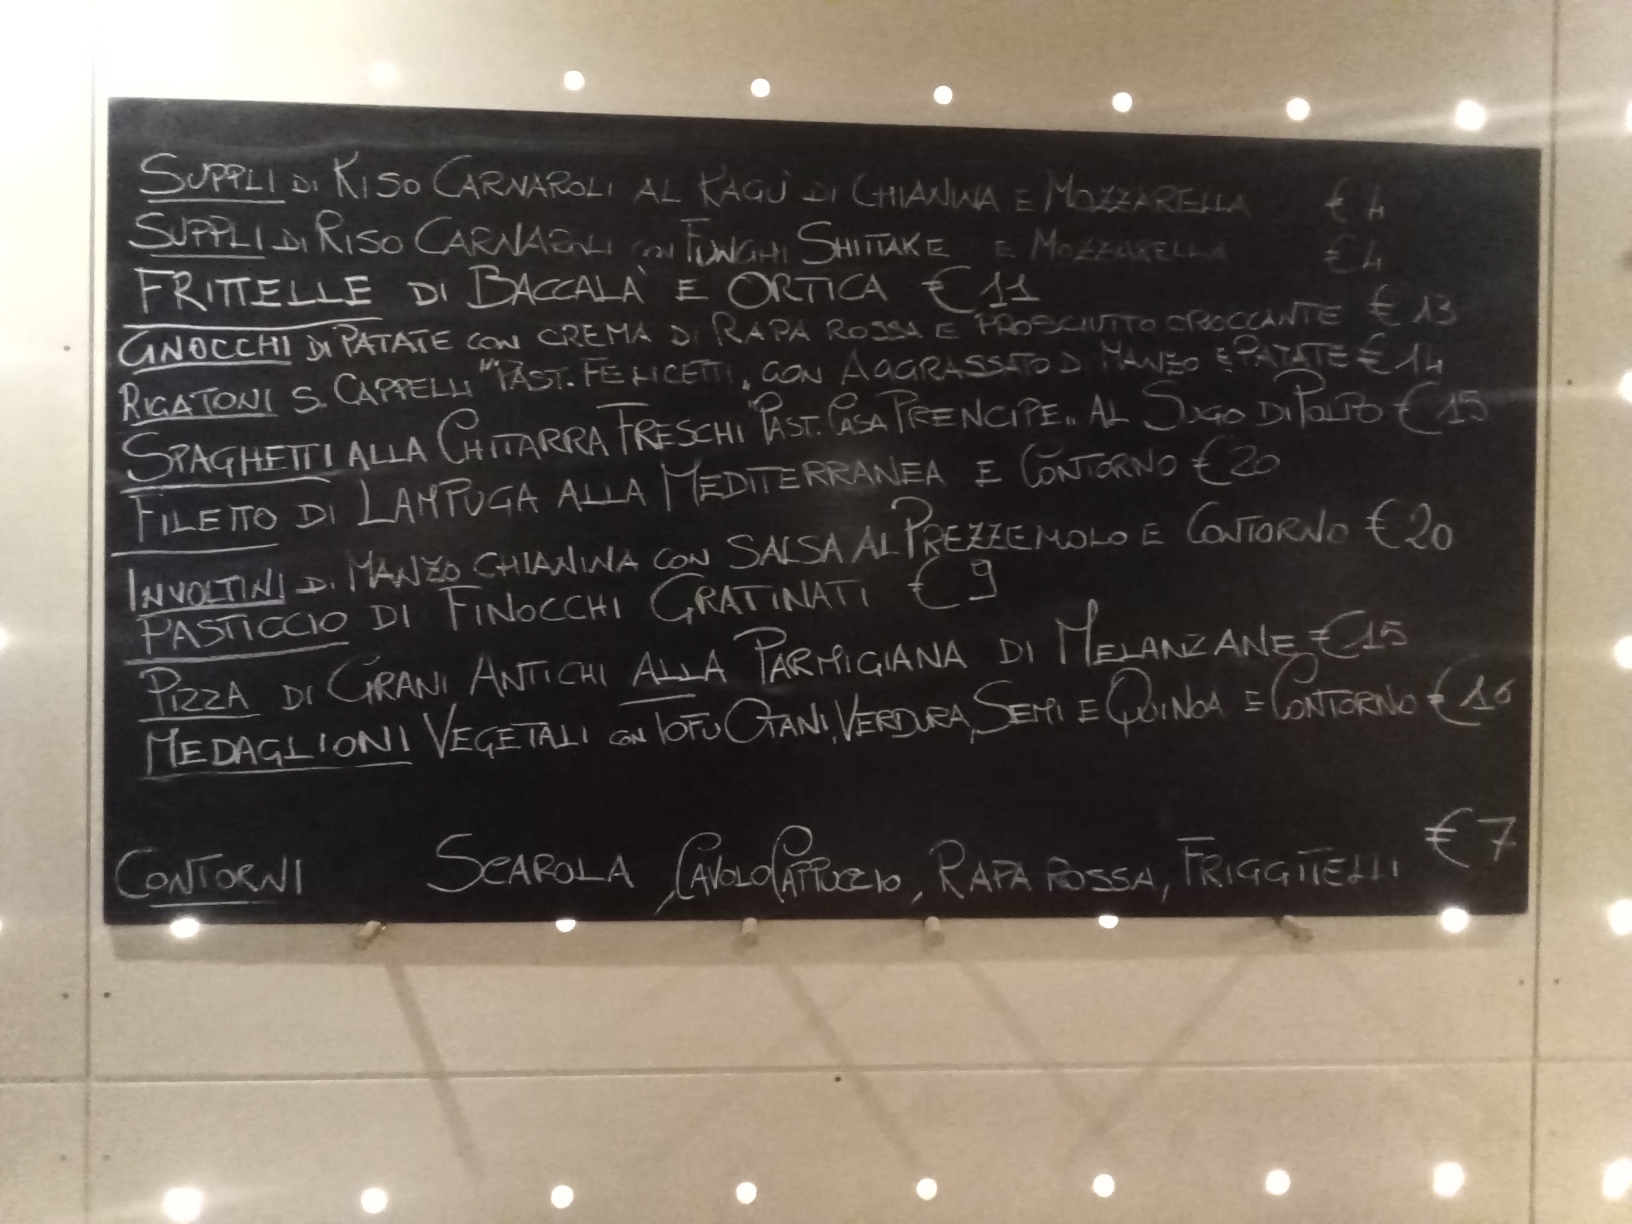 SUPPLI DI RISO CARNAROLI AL RAGÙ DI CHIANINA E MOZZARELLA € 4
SUPPLI DI RISO CARNAROLI CON FUNGHI SHIITAKE E MOZZARELLA € 4
FRITTELLE DI BACCALÀ E ORTICA € 11
GNOCCHI DI PATATE CON CREMA DI RAPA ROSSA E PROSCIUTTO CROCCANTE € 13
RIGATONI S. CAPPELLI "PAST. FELICETTI" CON AGGRASSATO DI MANZO E PATATE € 14
SPAGHETTI ALLA CHITARRA FRESCHI "PAST. CASA PRENCIPE" AL SUGO DI POLPO € 15
FILETTO DI LAMPUGA ALLA MEDITERRANEA E CONTORNO € 20
INVOLTINI DI MANZO CHIANINA CON SALSA AL PREZZEMOLO E CONTORNO € 20
PASTICCIO DI FINOCCHI GRATINATI € 9
PIZZA DI GRANI ANTICHI ALLA PARMIGIANA DI MELANZANE € 15
MEDAGLIONI VEGETALI CON TOFU OTANI, VERDURA, SEMI E QUINOA E CONTORNO € 16
CONTORNI SCAROLA, CAVOLO CAPPUCCIO, RAPA ROSSA, FRIGGITELLI € 7